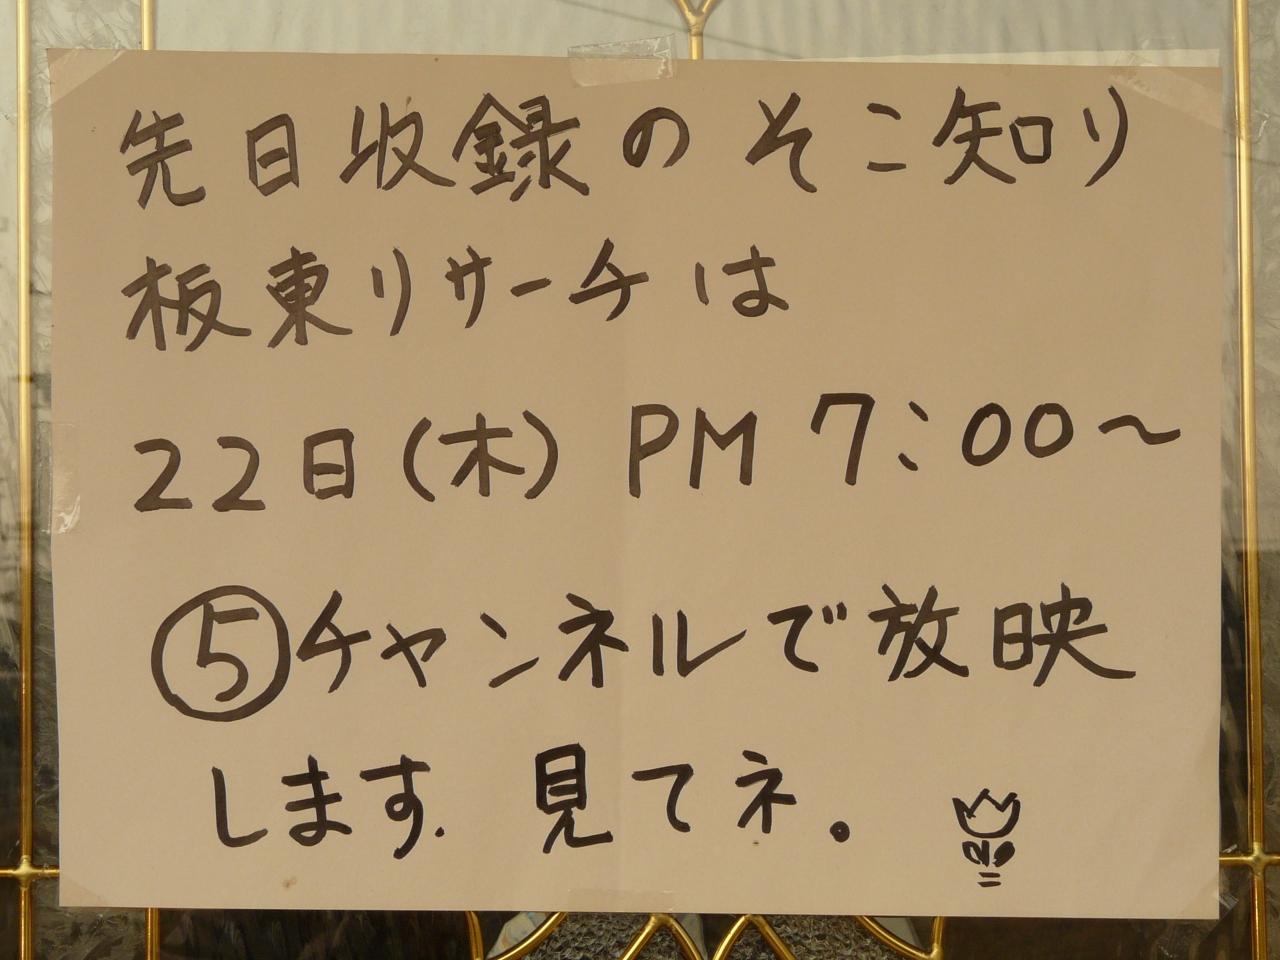 先日収録のそこ知り
板東リサーチは
22日(木) PM 7:00〜
⑤チャンネルで放映
します. 見てネ。